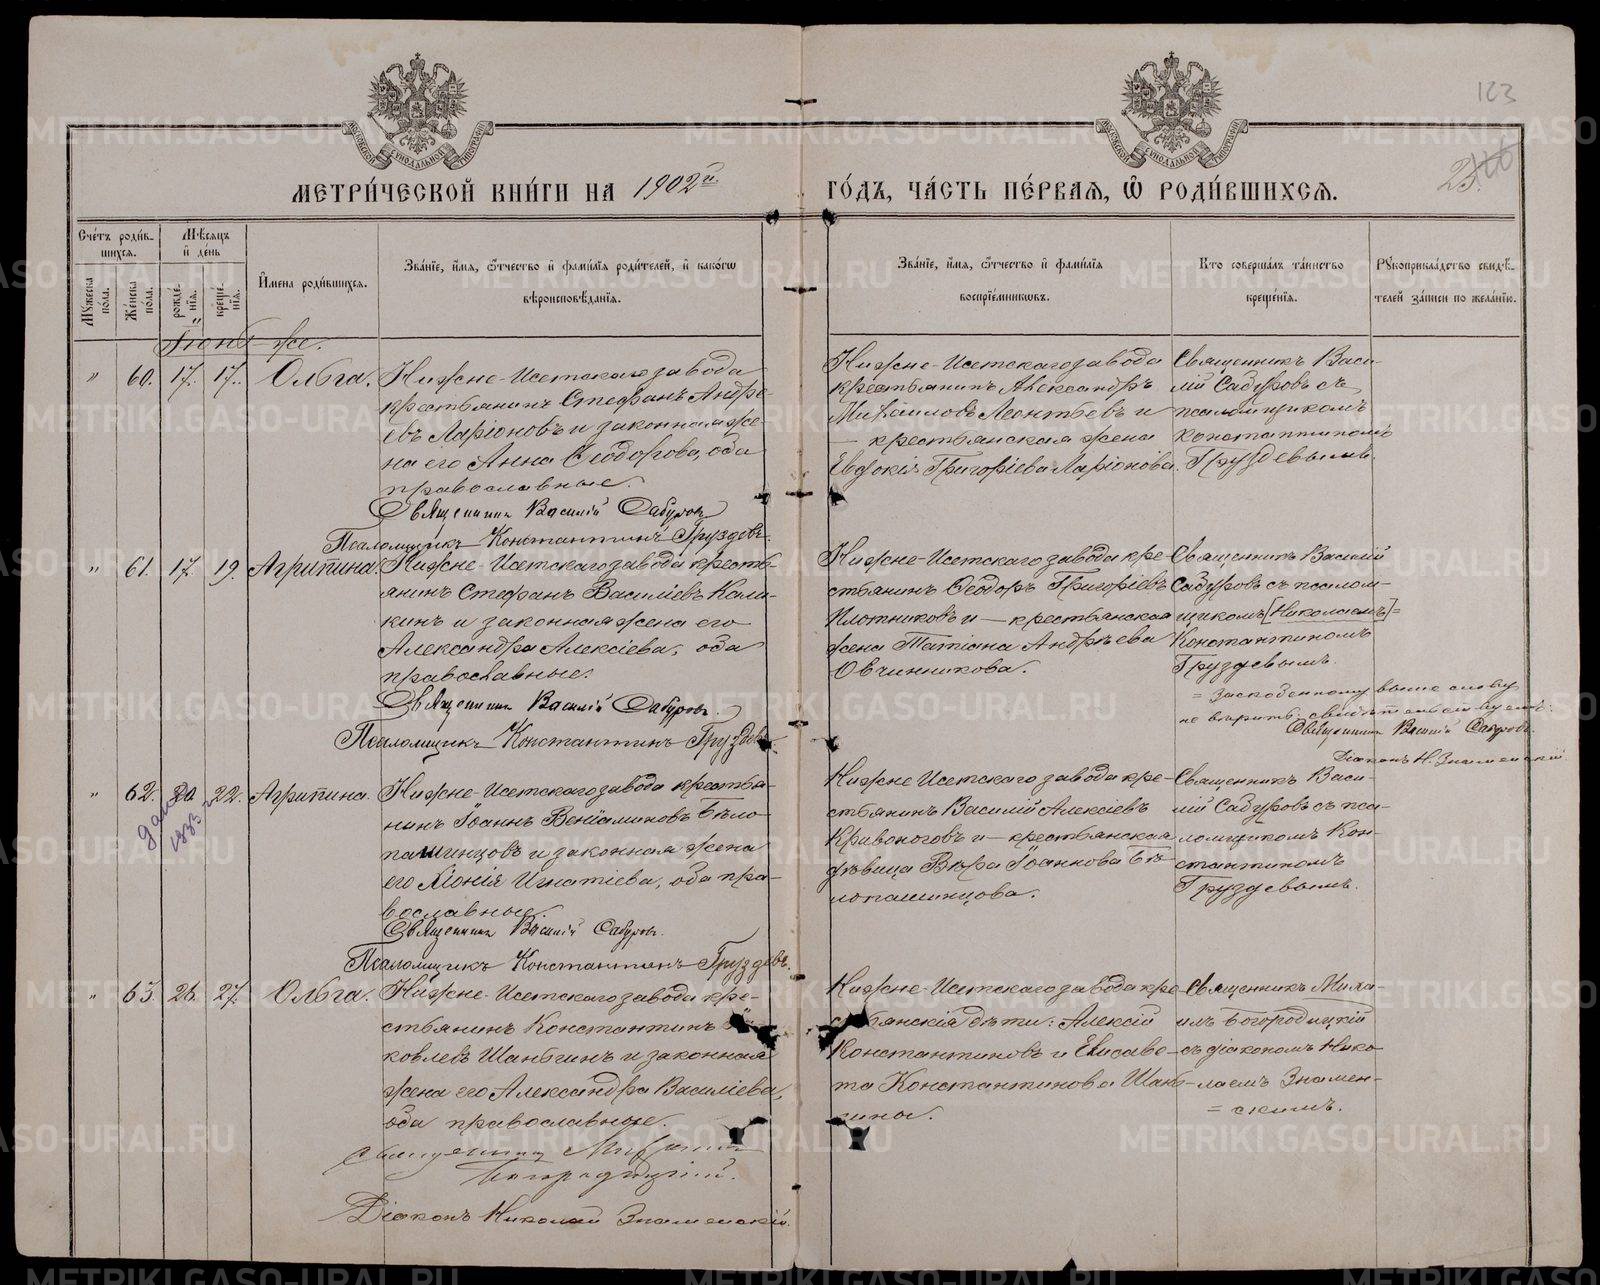 123
25.
МЕТРИ́ЧЕСКОЙ КНИ́ГИ НА 1902й
ГО́ДЪ, ЧА́СТЬ ПЕ́РВАЯ, Ѽ РОДИ́ВШИХСЯ.
Сче́тъ роди́в-
шихся.
Мѣ́сяцъ
и҆ де́нь
И҆мена роди́вшихся.
Зва́нїе, и҆́мя, ѻ҆́тчество и҆ фами́лїѧ роди́телей, и҆ како́гѡ
вѣроисповѣ́данїѧ.
Мꙋ́жеска
по́ла.
Же́нска
по́ла.
рожде́-
нїѧ.
креще́-
нїѧ.
Зва́нїе, и҆́мя, ѻ҆́тчество и҆ фами́лїѧ
воспрїе́мниковъ.
Кто̀ соверша́лъ та́инство
креще́нїѧ.
Рꙋкоприкла́дство свидѣ́-
телей за́писи по жела́нїю.
Іюнь же.
" 60. 17. 17. Ольга.
Нижне-Исетскаго завода
крестьянинъ Стефанъ Андре-
евъ Ларіоновъ и законная же-
на его Анна Ѳеодорова, оба
православные.
Священникъ Василій Сабуровъ
Псаломщикъ Константинъ Груздевъ.
Нижне-Исетскаго завода
крестьянинъ Александръ
Михаиловъ Леонтьевъ и
— крестьянская жена
Евдокія Григоріева Ларіонова.
Священникъ Васи-
лій Сабуровъ съ
псаломщикомъ
Константиномъ
Груздевымъ.
" 61. 17. 19. Агрипина.
Нижне-Исетскаго завода кресть-
янинъ Стефанъ Василіевъ Кала-
кинъ и законная жена его
Александра Алексіева, оба
православные.
Священникъ Василій Сабуровъ.
Псаломщикъ Константинъ Груздевъ
Нижне-Исетскаго завода кре-
стьянинъ Ѳеодоръ Григоріевъ
Плотниковъ и — крестьянская
жена Татіана Андреева
Овчинникова.
Священникъ Василій
Сабуровъ съ псалом-
щикомъ [Николаемъ]=
Константиномъ
Груздевымъ.
= Заскобенному выше слову
не вѣрить, свидѣтельствуемъ:
Священникъ Василій Сабуровъ
Діаконъ Н. Знаменскій.
" 62. 20 22. Агрипина.
дана
1933 г
Нижне-Исетскаго завода крестья-
нинъ Іоаннъ Веніаминовъ Бѣло-
пашинцовъ и законная жена
его Хіонія Игнатіева, оба пра-
вославные.
Священникъ Василій Сабуровъ.
Псаломщикъ Константинъ Груздевъ.
Нижне Исетскаго завода кре-
стьянинъ Василій Алексіевъ
Кривоноговъ и — крестьянская
дѣвица Вѣра Іоаннова Бѣ-
лопашинцова.
Священникъ Васи-
лій Сабуровъ съ пса-
ломщикомъ Кон-
стантиномъ
Груздевымъ.
" 63. 26. 27. Ольга.
Нижне-Исетскаго завода кре-
стьянинъ Константинъ
ковлевъ Шаньгинъ и законная
жена его Александра Василіева,
оба православные.
Священникъ Михаилъ
Богородицкій.
Діаконъ Николай Знаменскій.
Нижне-Исетскаго завода кре
стьянскія дѣти: Алексій
Константиновъ и Елисаве-
та Константинова Шань-
гины.
Священникъ Миха-
илъ Богородицкій
съ діакономъ Нико-
лаемъ Знамен-
= скимъ.
METRIKI.GASO-URAL.RU